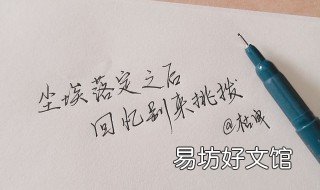 尘埃落定之后
回忆别来挑拨
@枯成
易坊好文馆